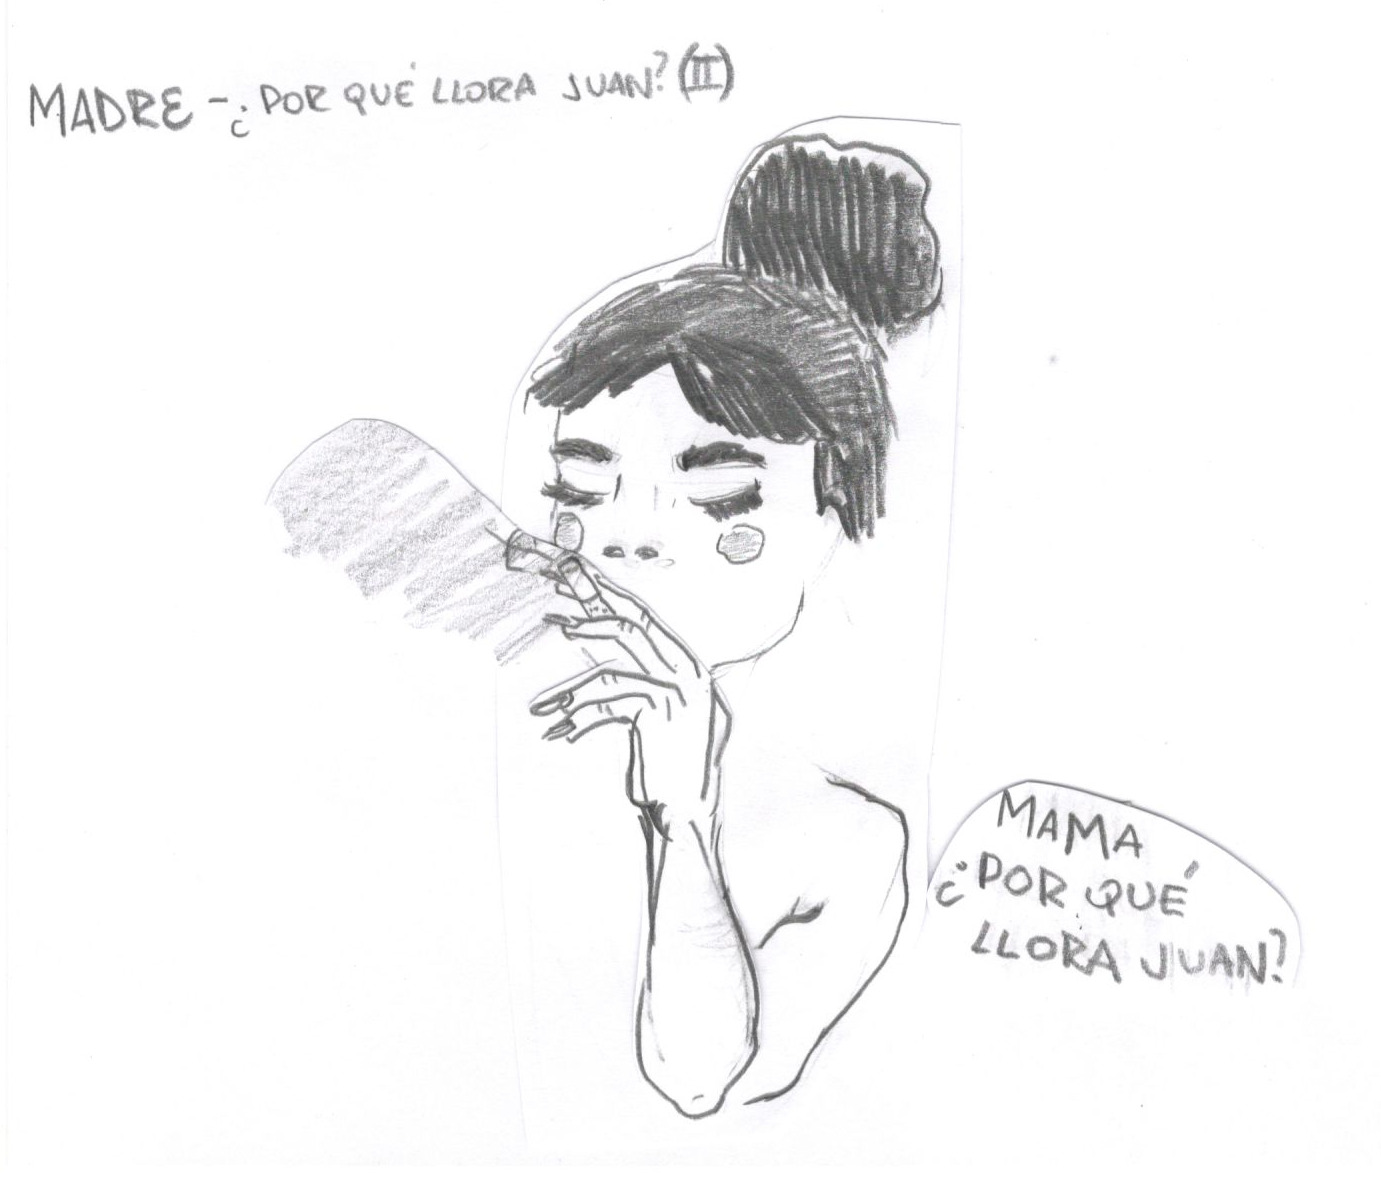 MADRE - ¿POR QUÉ LLORA JUAN? (II)
MAMA
¿POR QUÉ
LLORA JUAN?